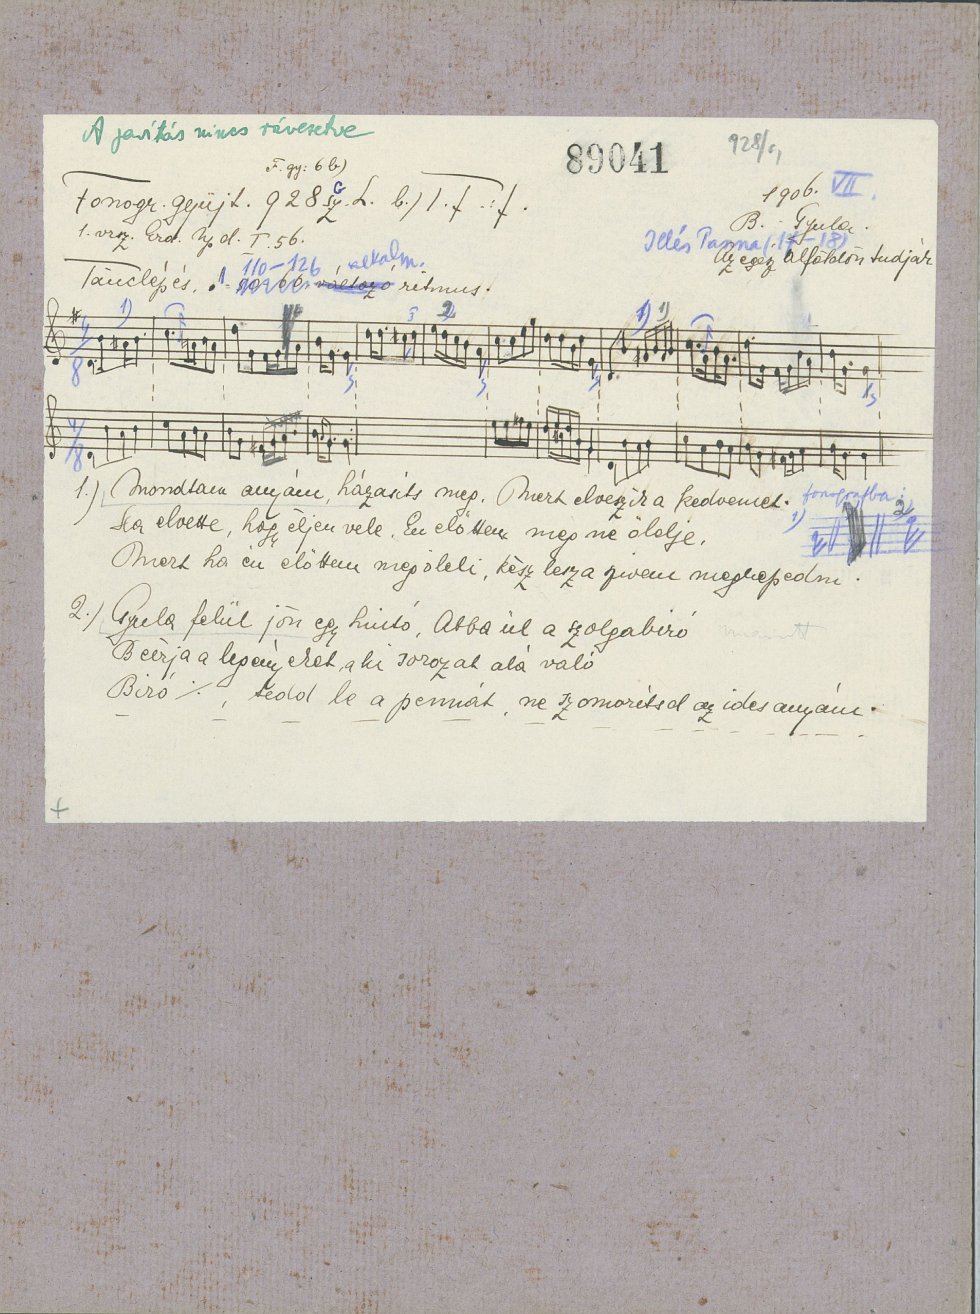 A javítás nincs rávezetve
F. gy: 6 b)
89041
928/c,
Fonogr. gyűjt. 928 L. b.) 1. f. : f.
1906. VII.
B. Gyula.
1. vrsz. Erd. I. 56.
Illés Panna (17-18)
Az egész Alföldön tudják
110-126 alkalm.
Tánclépés, változó ritmus.
1.) Mondtam anyám, házasíts meg. Mert elveszik a kedvemet.
Ha elvette, hogy éljen vele, Én előttem meg ne ölelje,
Mert ha én előttem megöleli, kész lesz a szivem megrepedni.
fonografba:
1) 2)
2.) Gyula felül jön egy hintó, Abba ül a szolgabiró
Beirja a legényeket, aki sorozat alá való
Biró ./. , tedd le a pennát, ne szomorítsd az ides anyám.